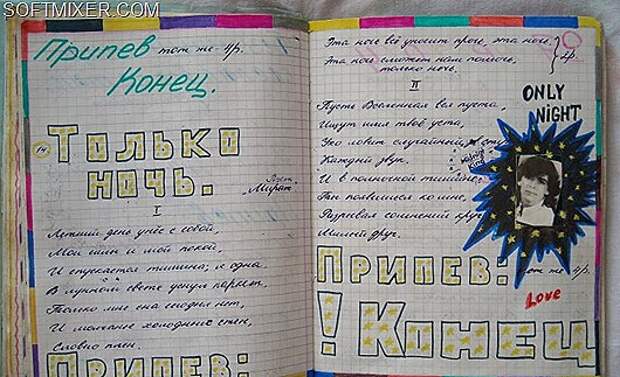 SOFTMIXER.COM
Припев тот же 4р.
Конец.
14
Только
ночь.
Группа
"Мираж"
I
Летний день унёс с собой,
Мои сны и мой покой,
И спускается тишина; я одна.
В лунном свете уснул паркет,
Только мне сна сегодня нет,
И молчанье холодных стен,
Словно плен.
Припев:
Эта ночь всё уносит прочь, эта ночь.
Эта ночь сможет нам помочь,
только ночь.
2р.
II
Пусть Вселенная вся пуста,
Ищут имя твоё уста,
Эхо ловит случайный
Каждый звук.
И в полночной тишине,
Ты появишься ко мне,
Разрывая сомнений круг,
Милый друг.
ONLY
NIGHT
Припев: тот же 4р.
Love
! Конец